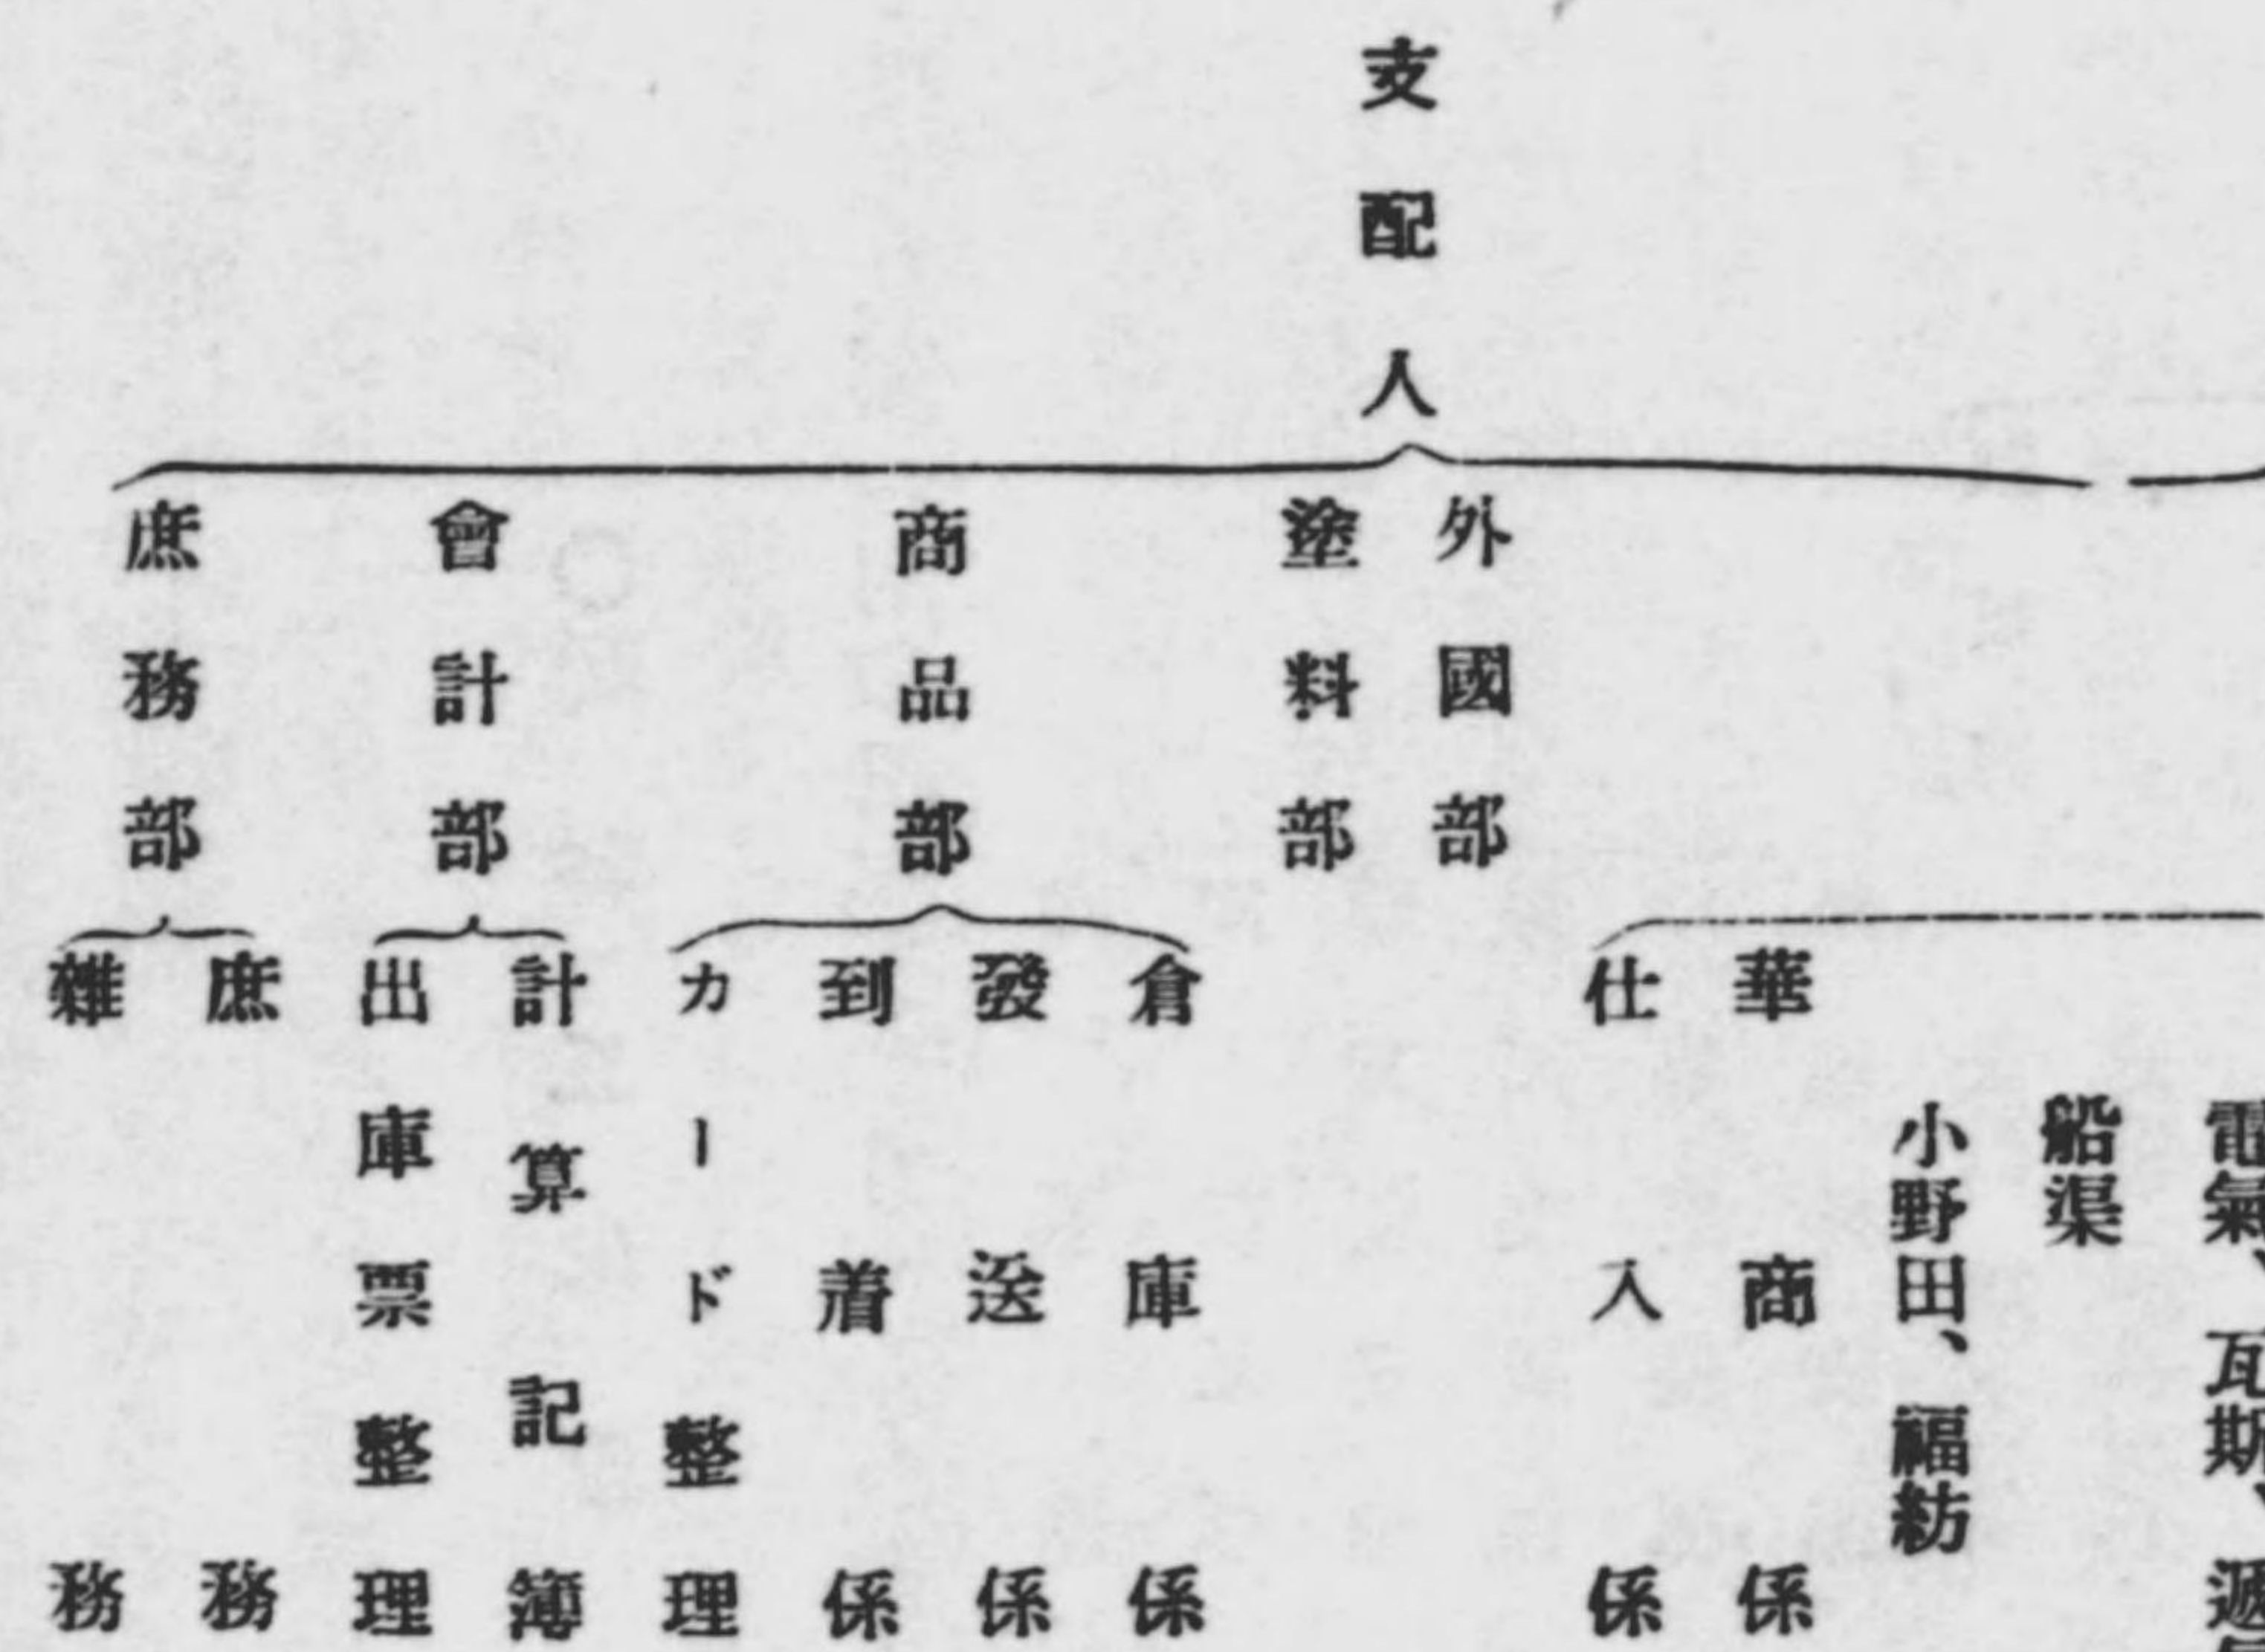 支配人
外國部
塗料部
商品部
會計部
庶務部
電氣、瓦斯、遞
船渠
小野田、福紡
華商係
仕入係
倉庫係
發送係
到着係
カード整理
計算記簿
出庫票整理
庶務
雜務